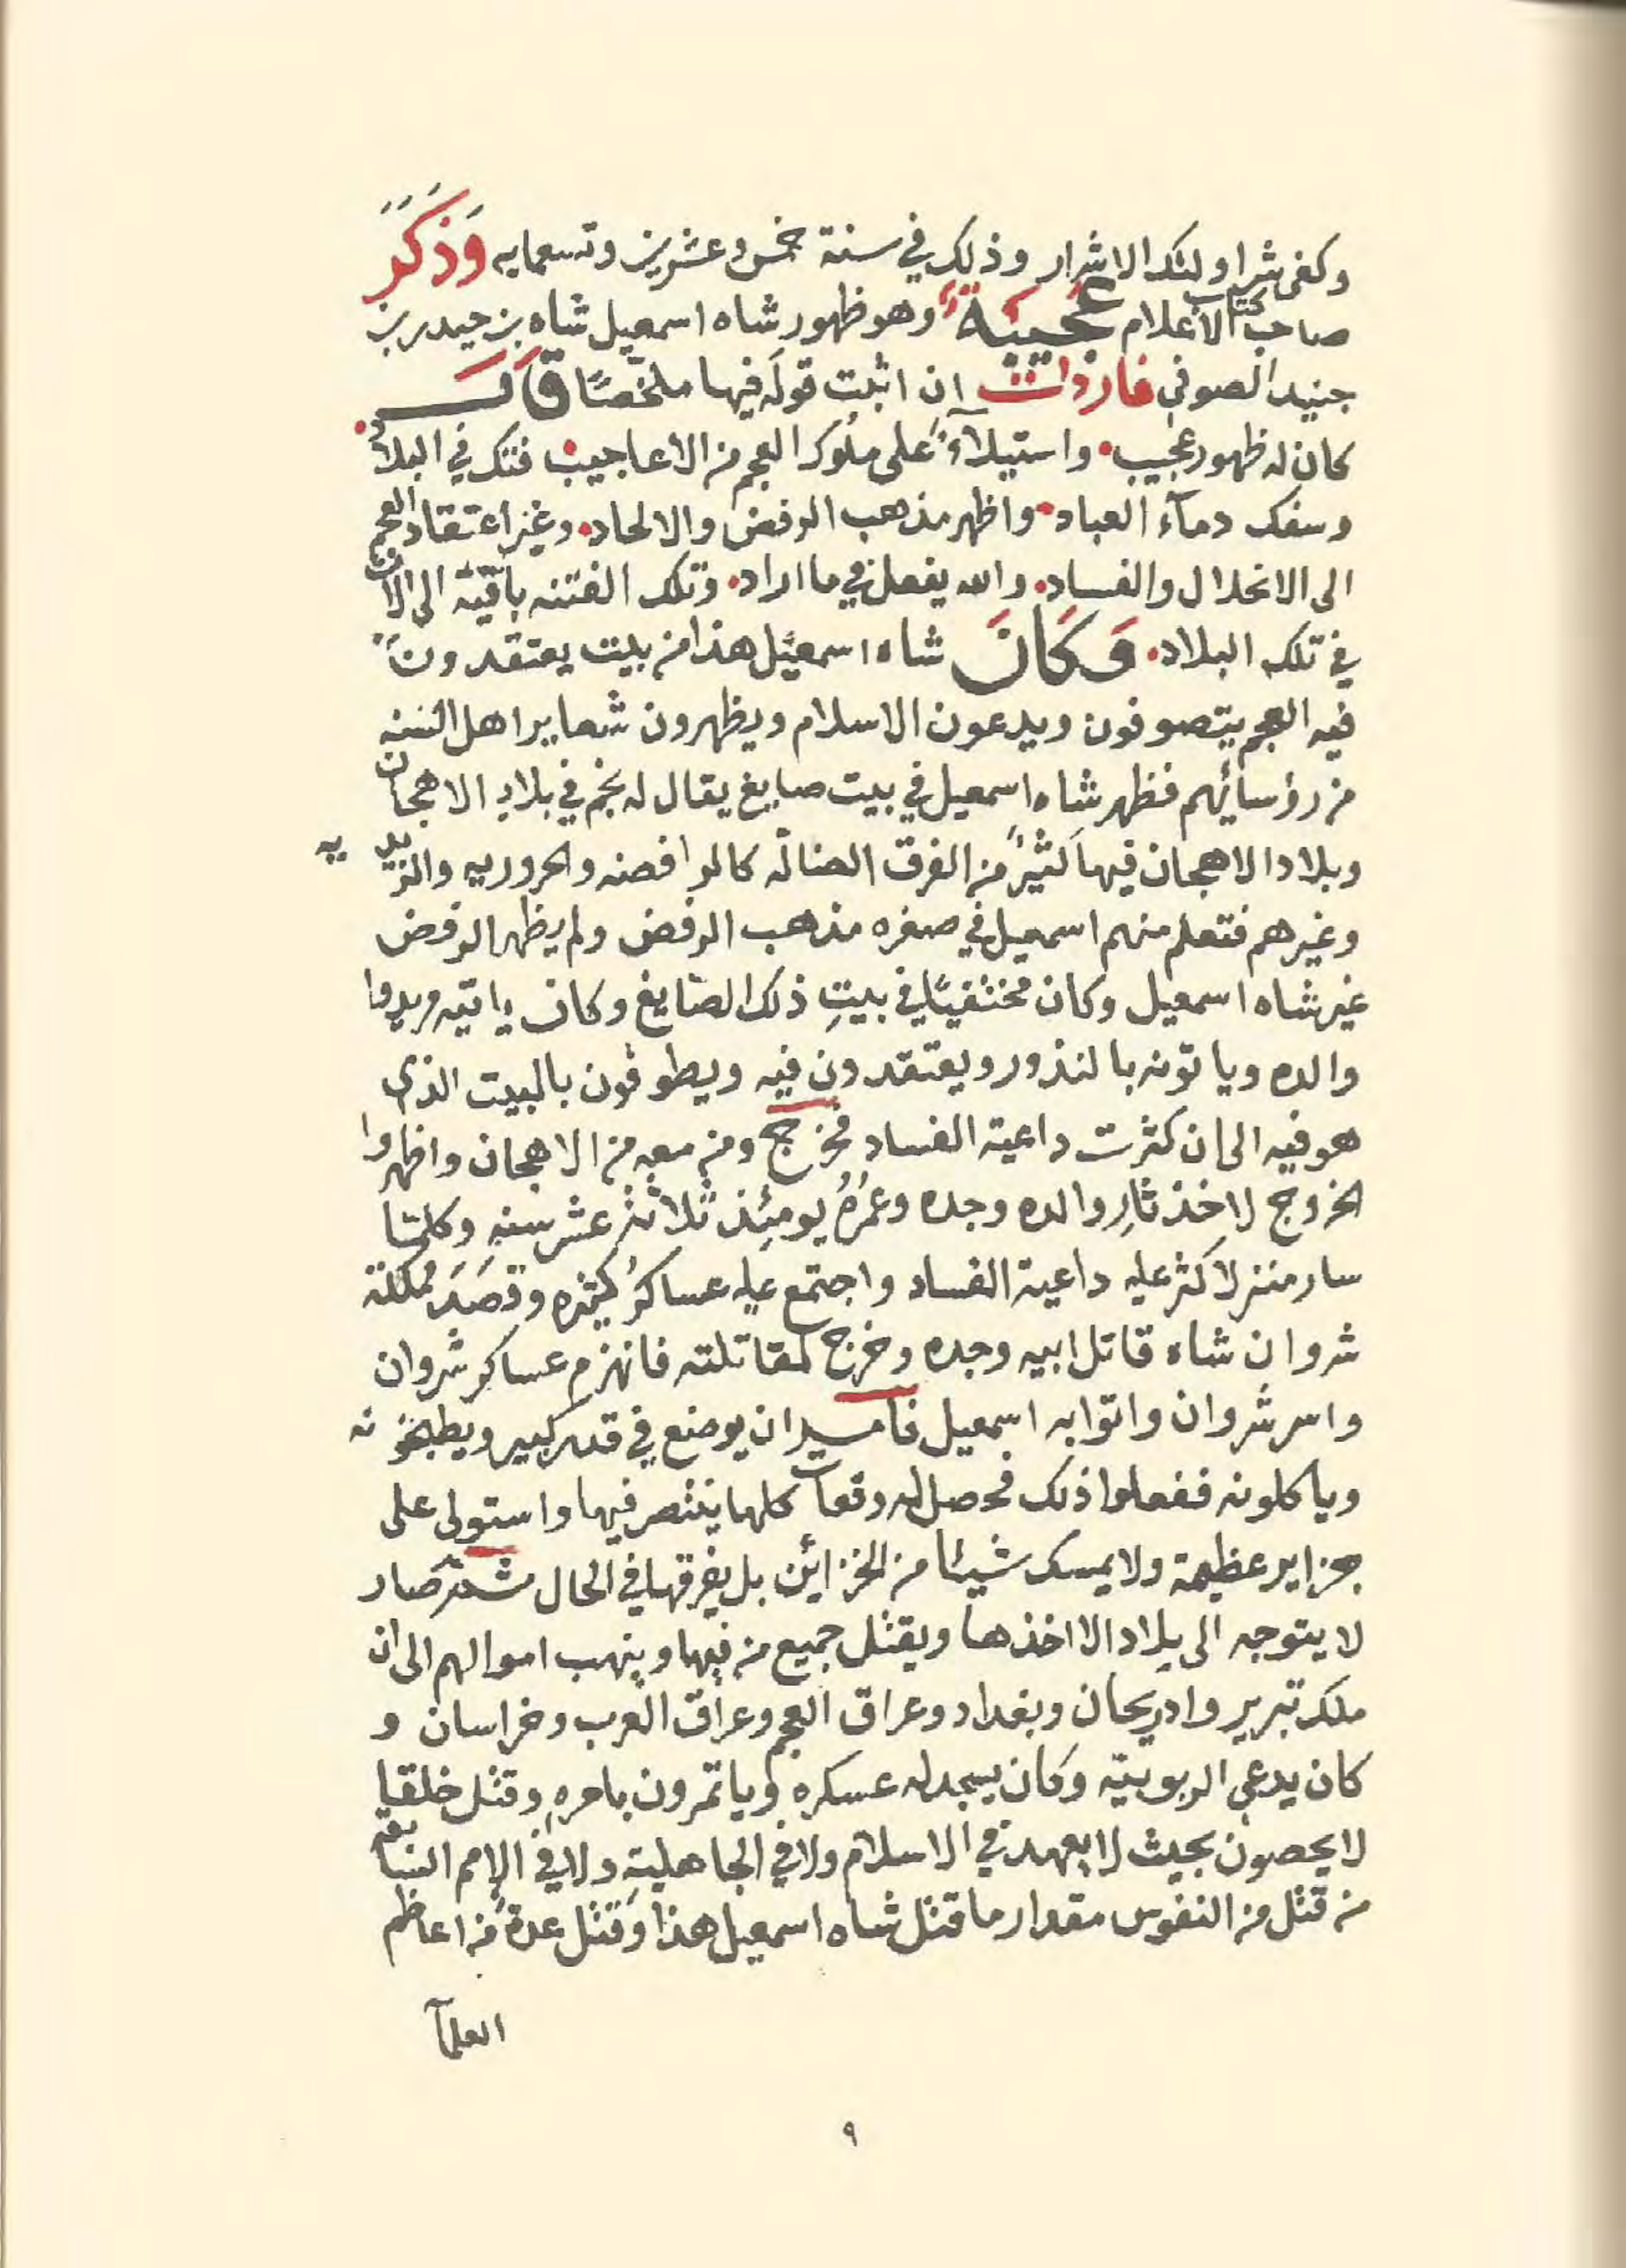 وكفى شر اولئك الاشرار وذلك في سنة خمس وعشرين وتسعمايه وَذَكَرَ
صاحب كتاب الاعلام عجيبة وهو ظهور شاه اسمعيل شاه بن حيدر بن
جنيد الصوفي فاردت ان اثبت قوله فيها ملخصًا قال
كان له ظهور عجيب. واستيلآء على ملوك العجم من الاعاجيب. فتك في البلاد.
وسفك دمآء العباد. واظهر مذهب الرفض والالحاد. وغير اعتقاد العجم
الى الانحلال والفساد. والله يفعل في ما اراد. وتلك الفتنه باقية الى الآن
في تلك البلاد. وَكَانَ شاه اسمعيل هذا من بيت يعتقدون
فيه العجم يتصوفون ويدعون الاسلام ويظهرون شعاير اهل السنه
من رؤسائهم فظهر شاه اسمعيل في بيت صايغ يقال له نجم في بلاد الاهجان
وبلاد الاهجان فيها كثيرٌ من الفرق الضالّه كالرافضه والحروريه والزيديه
وغيرهم فتعلم منهم اسمعيل في صغره مذهب الرفض ولم يظهر الرفض
غير شاه اسمعيل وكان مختفيًا في بيتِ ذلك الصايغ وكان ياتيه مريدوا
والده وياتونه بالنذور ويعتقدون فيه ويطوفون بالبيت الذي
هو فيه الى ان كثرت داعية الفساد فخرج ومن معه من الاهجان واظهروا
الخروج لاخذ ثارِ والده وجده وعمرُهُ يومئِذ ثلاثة عشر سنه وكلما
سار منزلا كثر عليه داعية الفساد واجتمع عليه عساكرُ كثيره وقصَدَ مملكة
شروان شاه قاتل ابيه وجده وخرج لمقاتلته فانهزم عساكر شروان
واسر شروان واتوا به اسمعيل فامر ان يوضع في قدر كبير ويطبخونه
وياكلونه ففعلوا ذلك فحصل له وقعات كلها ينتصر فيها واستولى على
جزاير عظيمة ولا يمسك شيئا من الخزائن بل يفرقها في الحال ثم صار
لا يتوجه الى بلاد الا اخذها ويقتل جميع من فيها وينهب اموالهم الى ان
ملك تبرير وادريحان وبغداد وعراق العجم وعراق العرب وخراسان و
كان يدعي الربوبيّه وكان يسجد له عسكره وياتمرون بامرهِ وقتل خلقا
لا يحصون بحيث لا يعهد في الاسلام ولا في الجاهليةِ ولا في الامم السابقه
من قتل من النفوس مقدار ما قتل شاه اسمعيل هذا وقتل عدة من اعاظم
العلمآ
٩